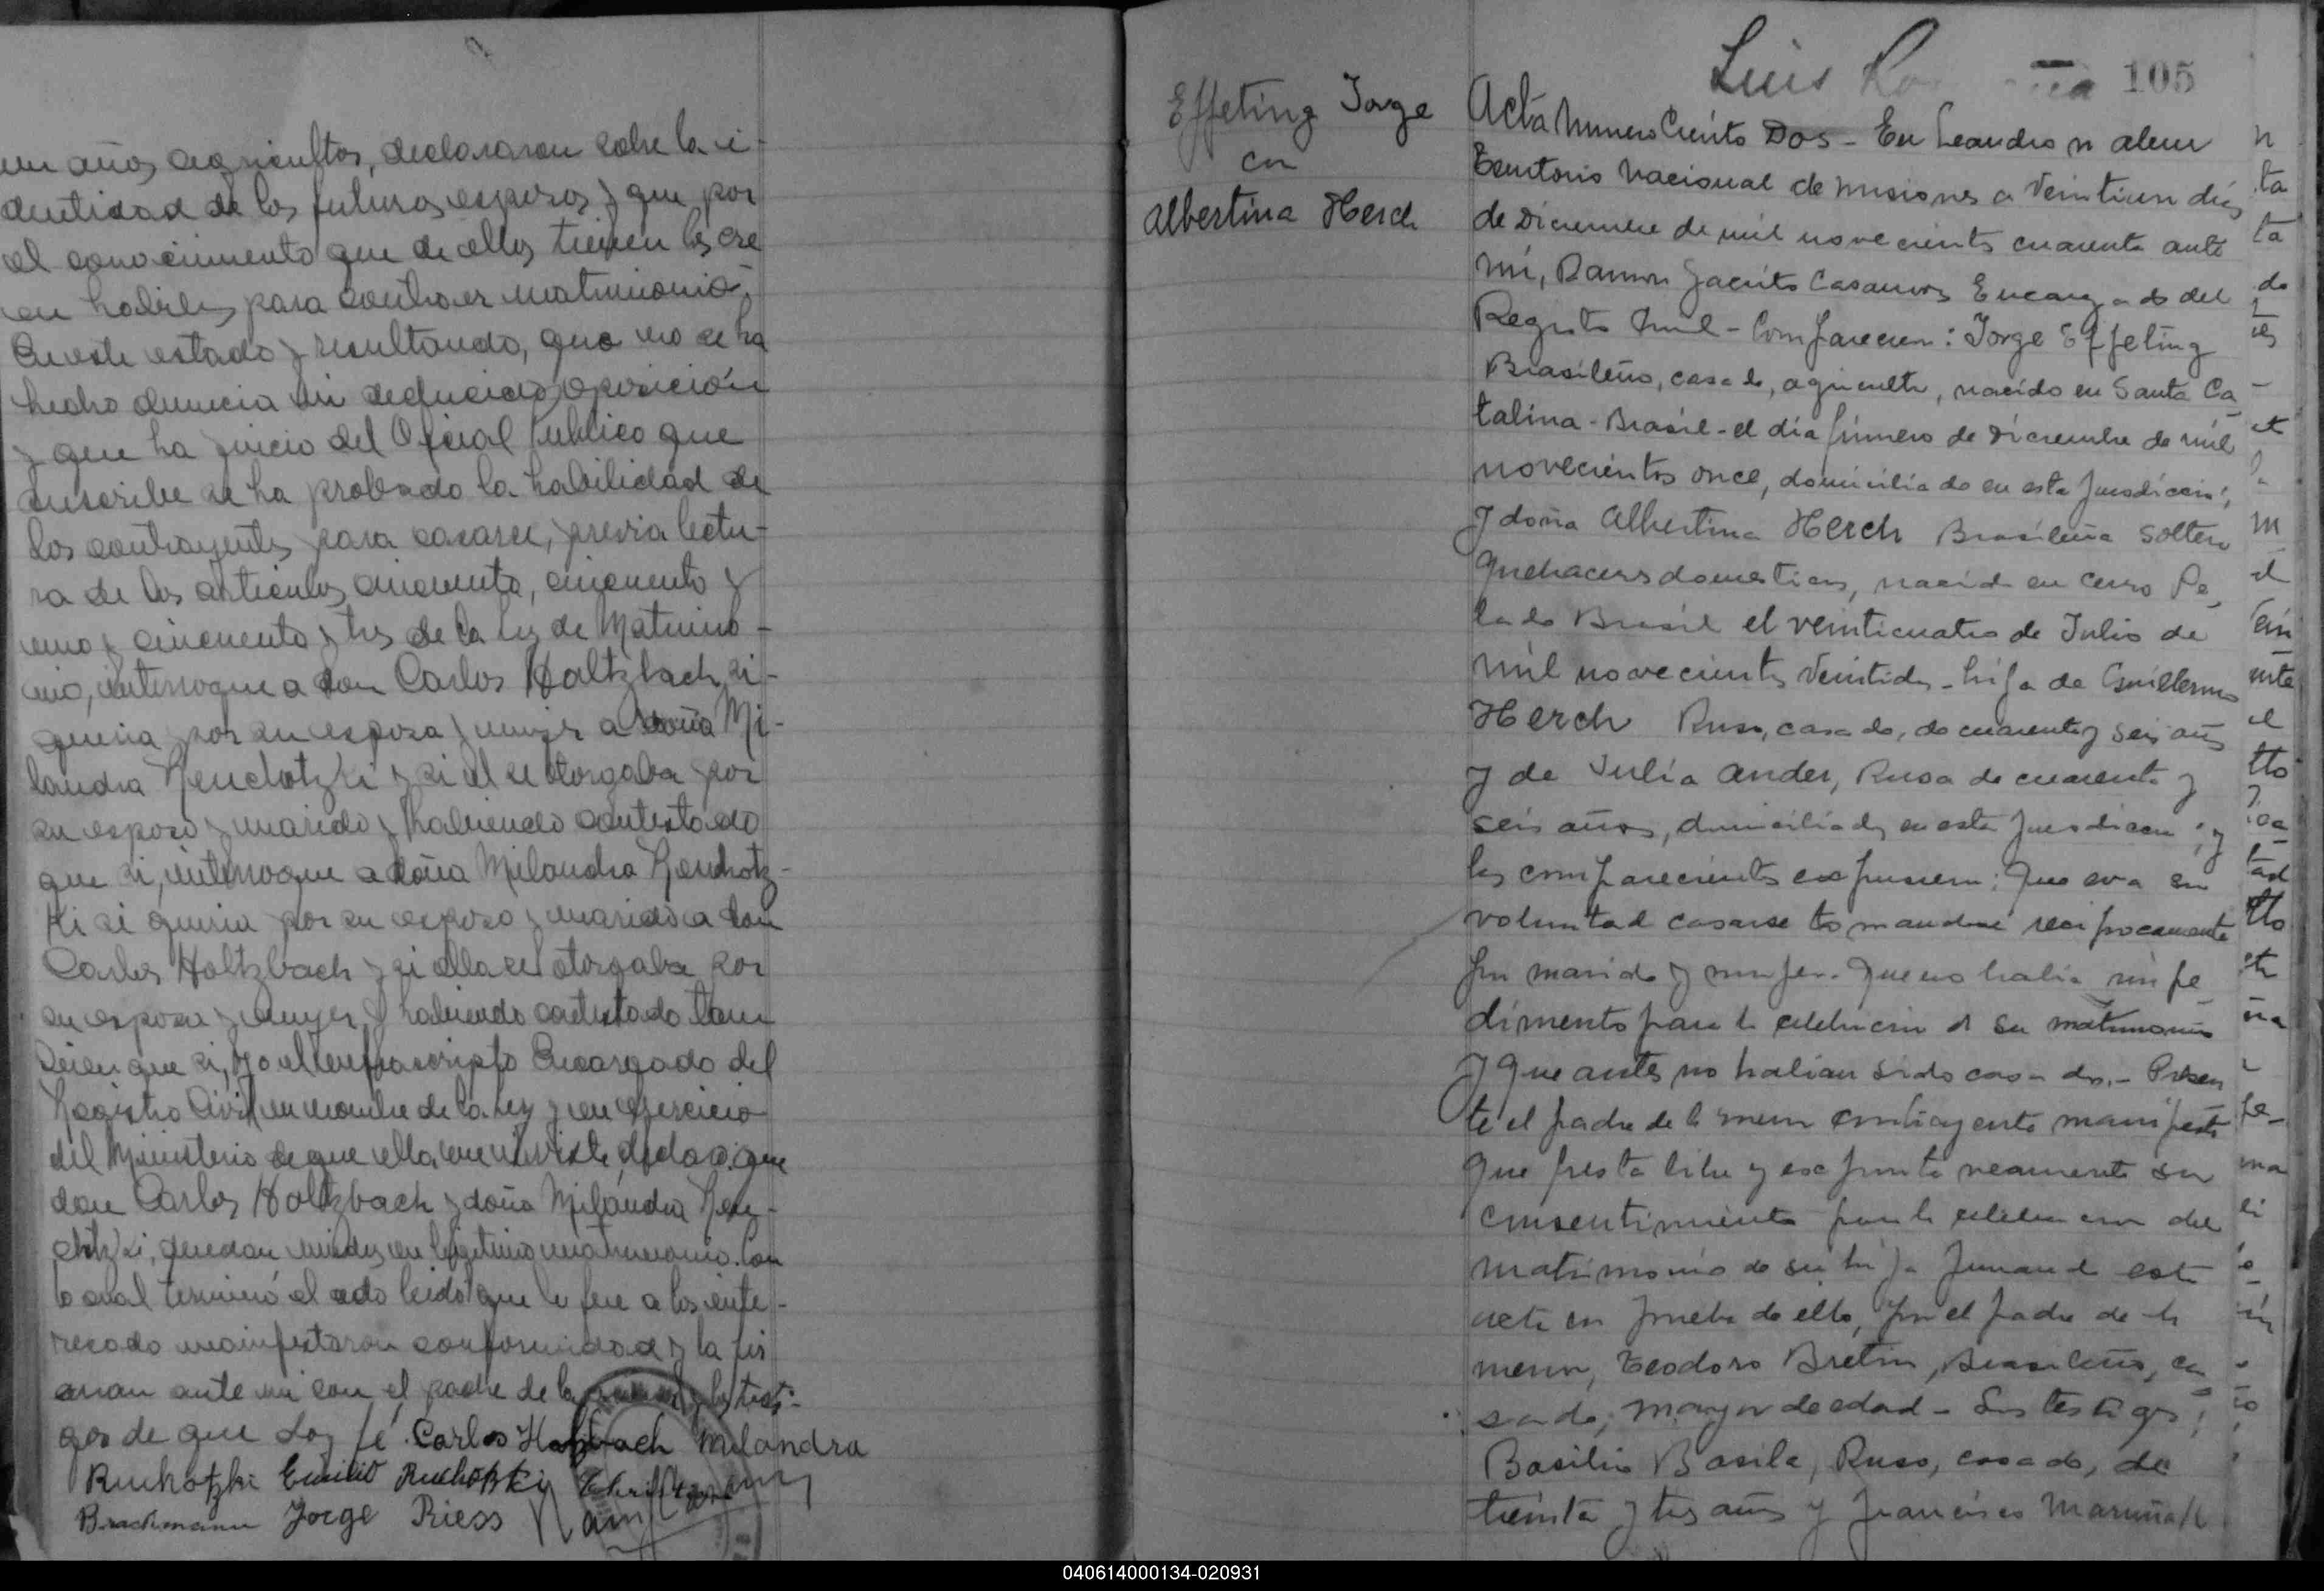 un años, agricultor, declararon sobre la i-
dentidad de los futuros esposos y que por
el conocimiento que de ellos tienen los cre
en habiles para contraer matrimonio.
En este estado y resultando, que no se ha
hecho denuncia ni deducido oposición
y que ha juicio del Oficial Publico que
suscribe se ha probado la habilidad de
los contrayentes para casarse, previa lectu-
ra de los articulos cincuenta, cincuenta y
uno y cincuenta y tres de la Ley de Matrimo-
nio, interroque a don Carlos Holtzbach si-
queria por su esposa y mujer a doña Mi-
landra y si el se otorgaba por
su esposo y marido y habiendo contestado
que si, interroque a doña Milandra
ki si queria por su esposo y marido a don
Carlos Holtzbach y si ella se otorgaba por
su esposa y mujer y habiendo contestado tam
bien que si, yo el infrascripto Encargado del
Registro Civil en nombre de la Ley y en ejercicio
del Ministerio de que ella me inviste, declaro: que
don Carlos Holtzbach y doña Milandra
quedan unidos en legitimo matrimonio. Con
lo cual terminó el acto leido que le fue a los inte-
resado manifestaron conformidad y la fir
man ante mi con el padre de la menor y los testi-
gos de que doy fé. Carlos Holtzbach Milandra
Ruchotzki Emilio Ruchotzki
Brachmann Jorge Riess
Luis 105
Effeting Jorge
con
Albertina Herch
Acta Numero Ciento Dos - En Leandro n alem
Territorio Nacional de misiones a Veintiun dias
de Diciembre de mil novecientos cuarenta ante
mi, Ramon Jacinto Casanova Encargado del
Registro Civil - Comparecen: Jorge Effeting
Brasileño, casado, agricultor, nacido en Santa Ca
talina - Brasil - el día primero de Diciembre de mil
novecientos once, domiciliado en esta Jurisdicción;
y doña Albertina Herch Brasileña soltera
Quehaceres domesticos, nacida en Cerro Pe
lado Brasil el veinticuatro de Julio de
mil novecientos Veintidos - hija de Guillermo
Herch Ruso, casado, de cuarenta y seis años
y de Julia Ander, Rusa de cuarenta y
seis años, domiciliados en esta Jurisdiccion; y
los comparecientes expusieron: Que era su
voluntad casarse tomandose reciprocamente
por marido y mujer. Que no habia impe
dimento para la celebracion de su matrimonio
y Que antes no habian sido casados. - Presen
te el padre de la menor contrayente manifestó
que presta libre y espontaneamente su
consentimiento para la celebracion del
matrimonio de su hija firmando este
acta en prueba de ello, por el padre de la
menor, Teodoro Bretin, Brasileño, ca
sado, mayor de edad - Los testigos;
Basilio Basile, Ruso, casado, de
treinta y tres años y Francisco
040614000134-020931